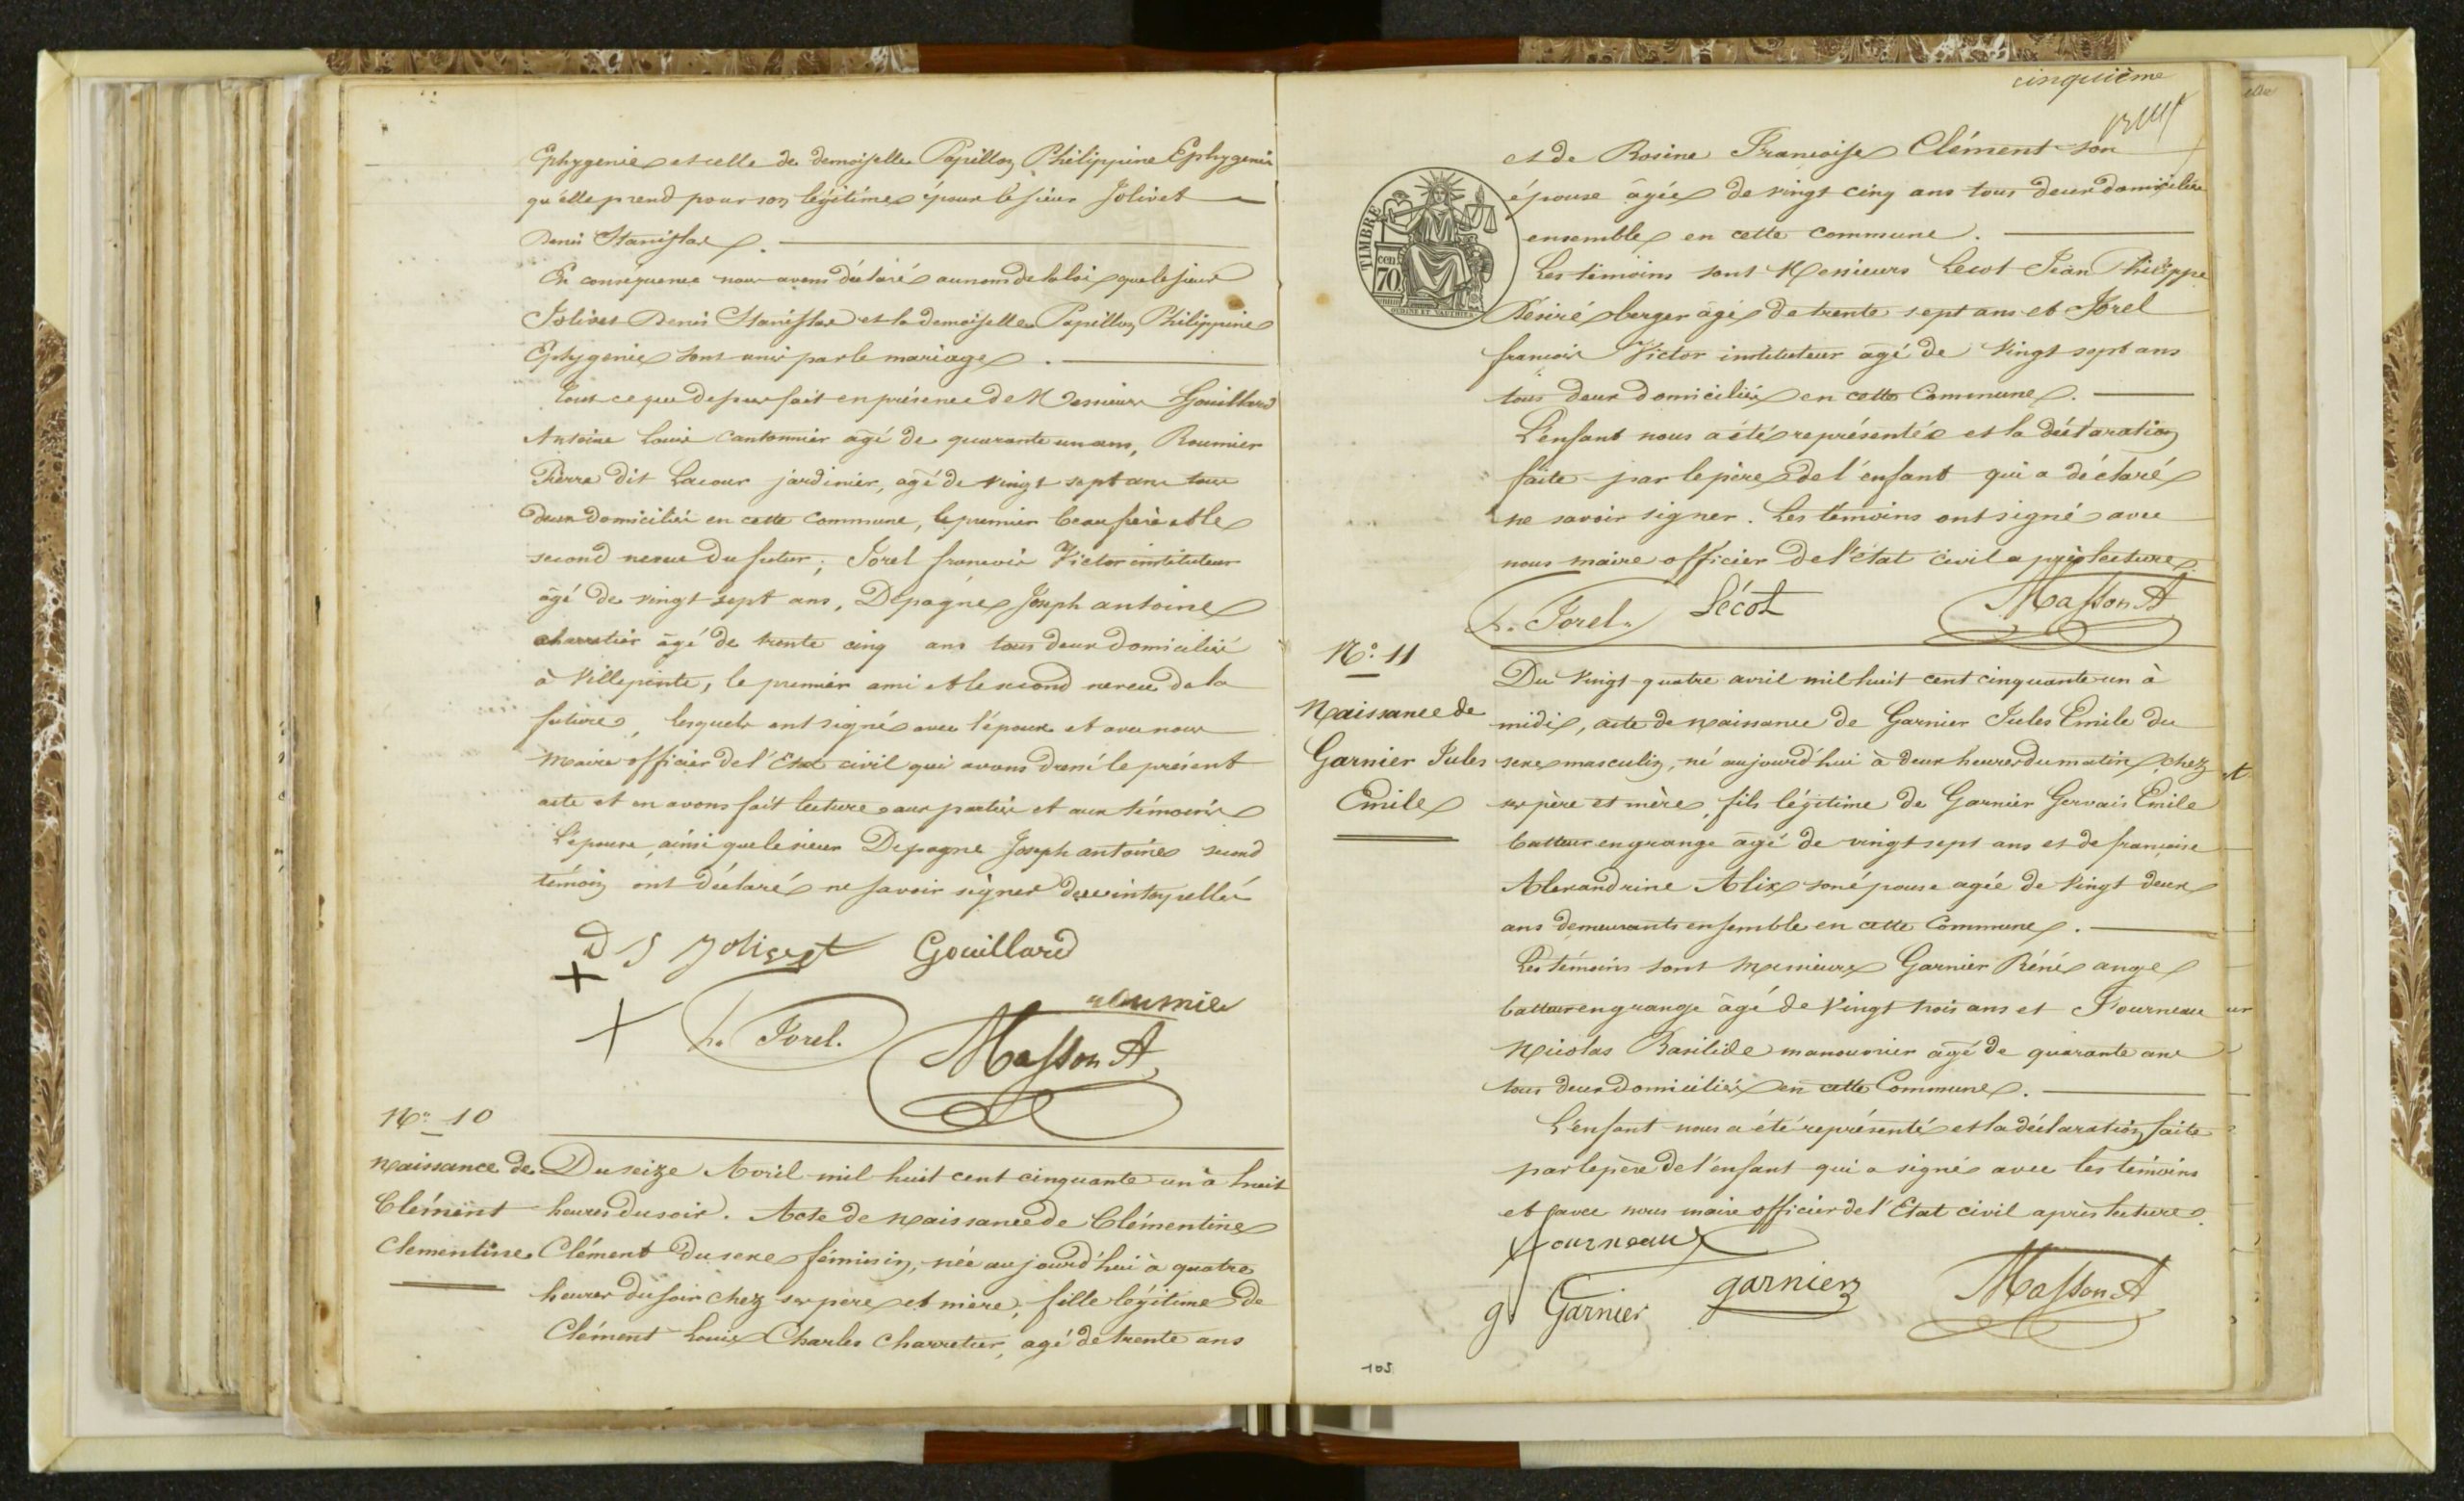 Ephygenie et celle de demoiselle Papillon Philippine Ephygenie
qu'elle prend pour son légitime époux le sieur Jolivet
Denis Stanislas.
En conséquence nous avons déclaré au nom de la loi que le sieur
Jolivet Denis Stanislas et la demoiselle Papillon Philippine
Ephygenie sont unis par le mariage.
Tout ce que dessus fait en présence de Messieurs Gouillard
Antoine Louis Cantonnier agé de quarante un ans, Roumier
Pierre dit Lacour jardinier, agé de vingt sept ans tous
deux domiciliés en cette commune, le premier beau frère et le
second neveu du futur; Jorel françois Victor instituteur
âgé de vingt sept ans, Depagne Joseph antoine
charretier âgé de trente cinq ans tous deux domiciliés
à Villepinte, le premier ami et le second neveu de la
future, lesquels ont signé avec l'époux et avec nous
Maire officier de l'Etat civil qui avons dressé le présent
acte et en avons fait lecture aux parties et aux témoins
L'épouse ainsi que le sieur Depagne Joseph antoine second
témoin ont déclaré ne savoir signer de ce interpellés
D S Jolivet Gouillard
roumier
Jorel. Masson A
N° 10
Naissance de
Clément
Clementine
Du seize Avril mil huit cent cinquante un à huit
heures du soir. Acte de Naissance de Clémentine
Clément du sexe féminin, née aujourd'hui à quatre
heures du soir chez ses père et mère, fille légitime de
Clément Louis Charles Charretier, agé de trente ans
cinquième
et de Rosine Françoise Clément son
épouse âgée de vingt cinq ans tous deux domiciliés
ensemble en cette commune.
TIMBRE
70 cen
Les témoins sont Messieurs Lecot Jean Philippe
Désiré berger âgé de trente sept ans et Jorel
françois Victor instituteur âgé de Vingt sept ans
tous deux domiciliés en cette Commune.
L'enfant nous a été représentée et la déclaration
faite par le père de l'enfant qui a déclaré
ne savoir signer. Les témoins ont signé avec
nous maire officier de l'état civil après lecture.
Jorel Lécot Masson A
N° 11
Naissance de
Garnier Jules
Emile
Du Vingt quatre avril mil huit cent cinquante un à
midi, acte de naissance de Garnier Jules Emile du
sexe masculin, né aujourd'hui à deux heures du matin chez
ses père et mère, fils légitime de Garnier Gervais Emile
batteur en grange âgé de vingt sept ans et de françoise
Alexandrine Alix son épouse agée de Vingt deux
ans demeurants ensemble en cette Commune.
Les témoins sont Messieurs Garnier Réné ange
batteur en grange âgé de Vingt trois ans et Fourneau
Nicolas Basilide manouvrier agé de quarante ans
tous deux domiciliés en cette Commune.
L'enfant nous a été représenté et la déclaration faite
par le père de l'enfant qui a signé avec les témoins
et avec nous maire officier de l'Etat civil après lecture.
fourneau
g Garnier garnier Masson A
105